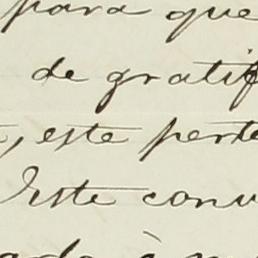 para que
de gratif
, este perte
Este conv
à